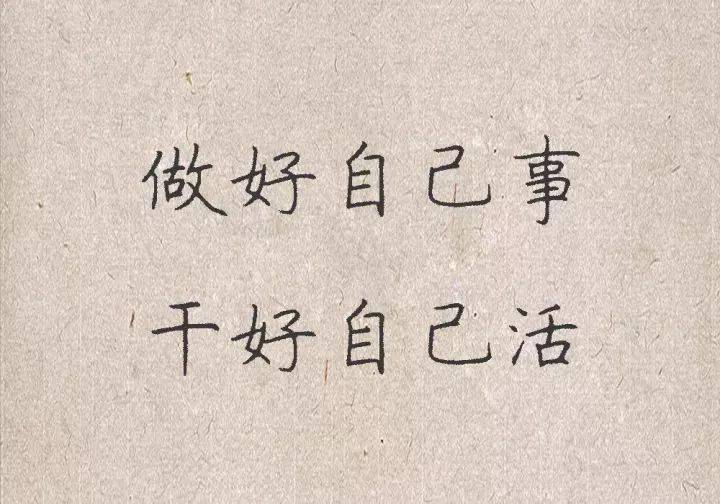 做好自己事
干好自己活